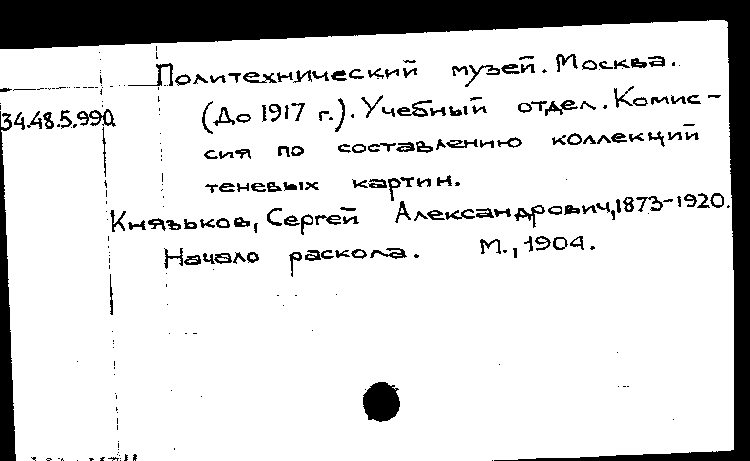 Политехнический музей. Москва.
34.48.5.990. (До 1917 г.). Учебный отдел. Комис-
сия по составлению коллекций
теневых картин.
Князьков, Сергей Александрович, 1873-1920.
Начало раскола. М., 1904.